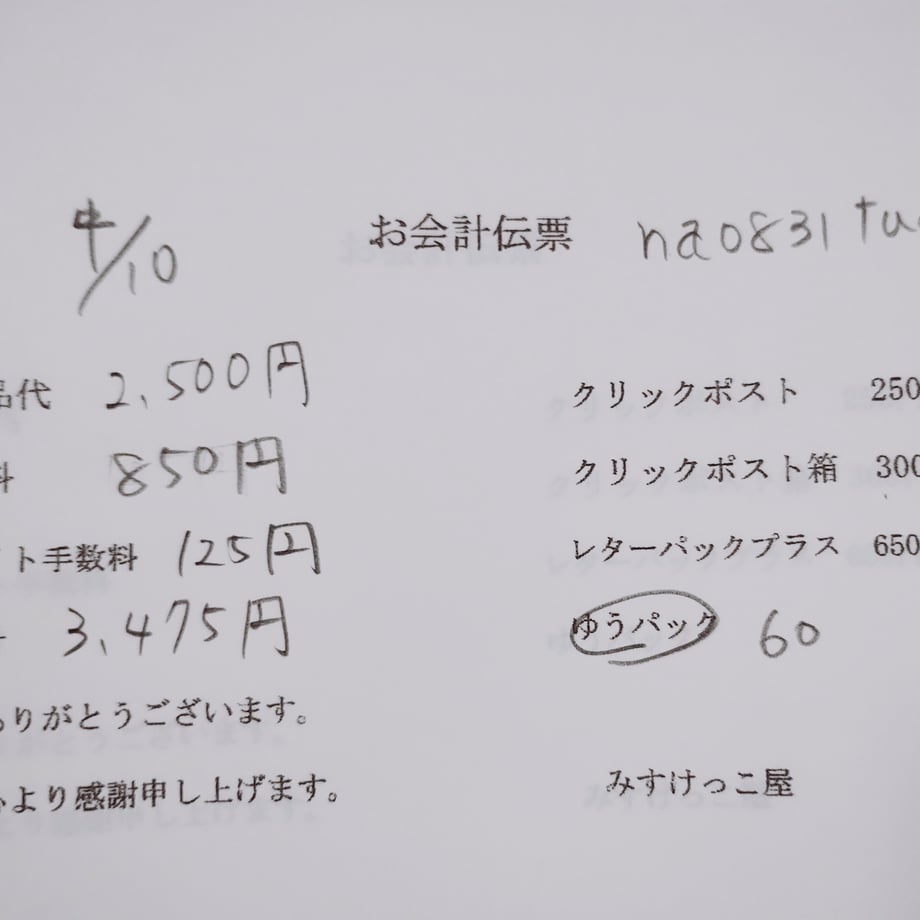 4/10 お会計伝票 na0831tu
品代 2,500円 クリックポスト 250
料 850円 クリックポスト箱 300
ト手数料 125円 レターパックプラス 650
3,475円 ゆうパック 60
りがとうございます。
より感謝申し上げます。 みすけっこ屋